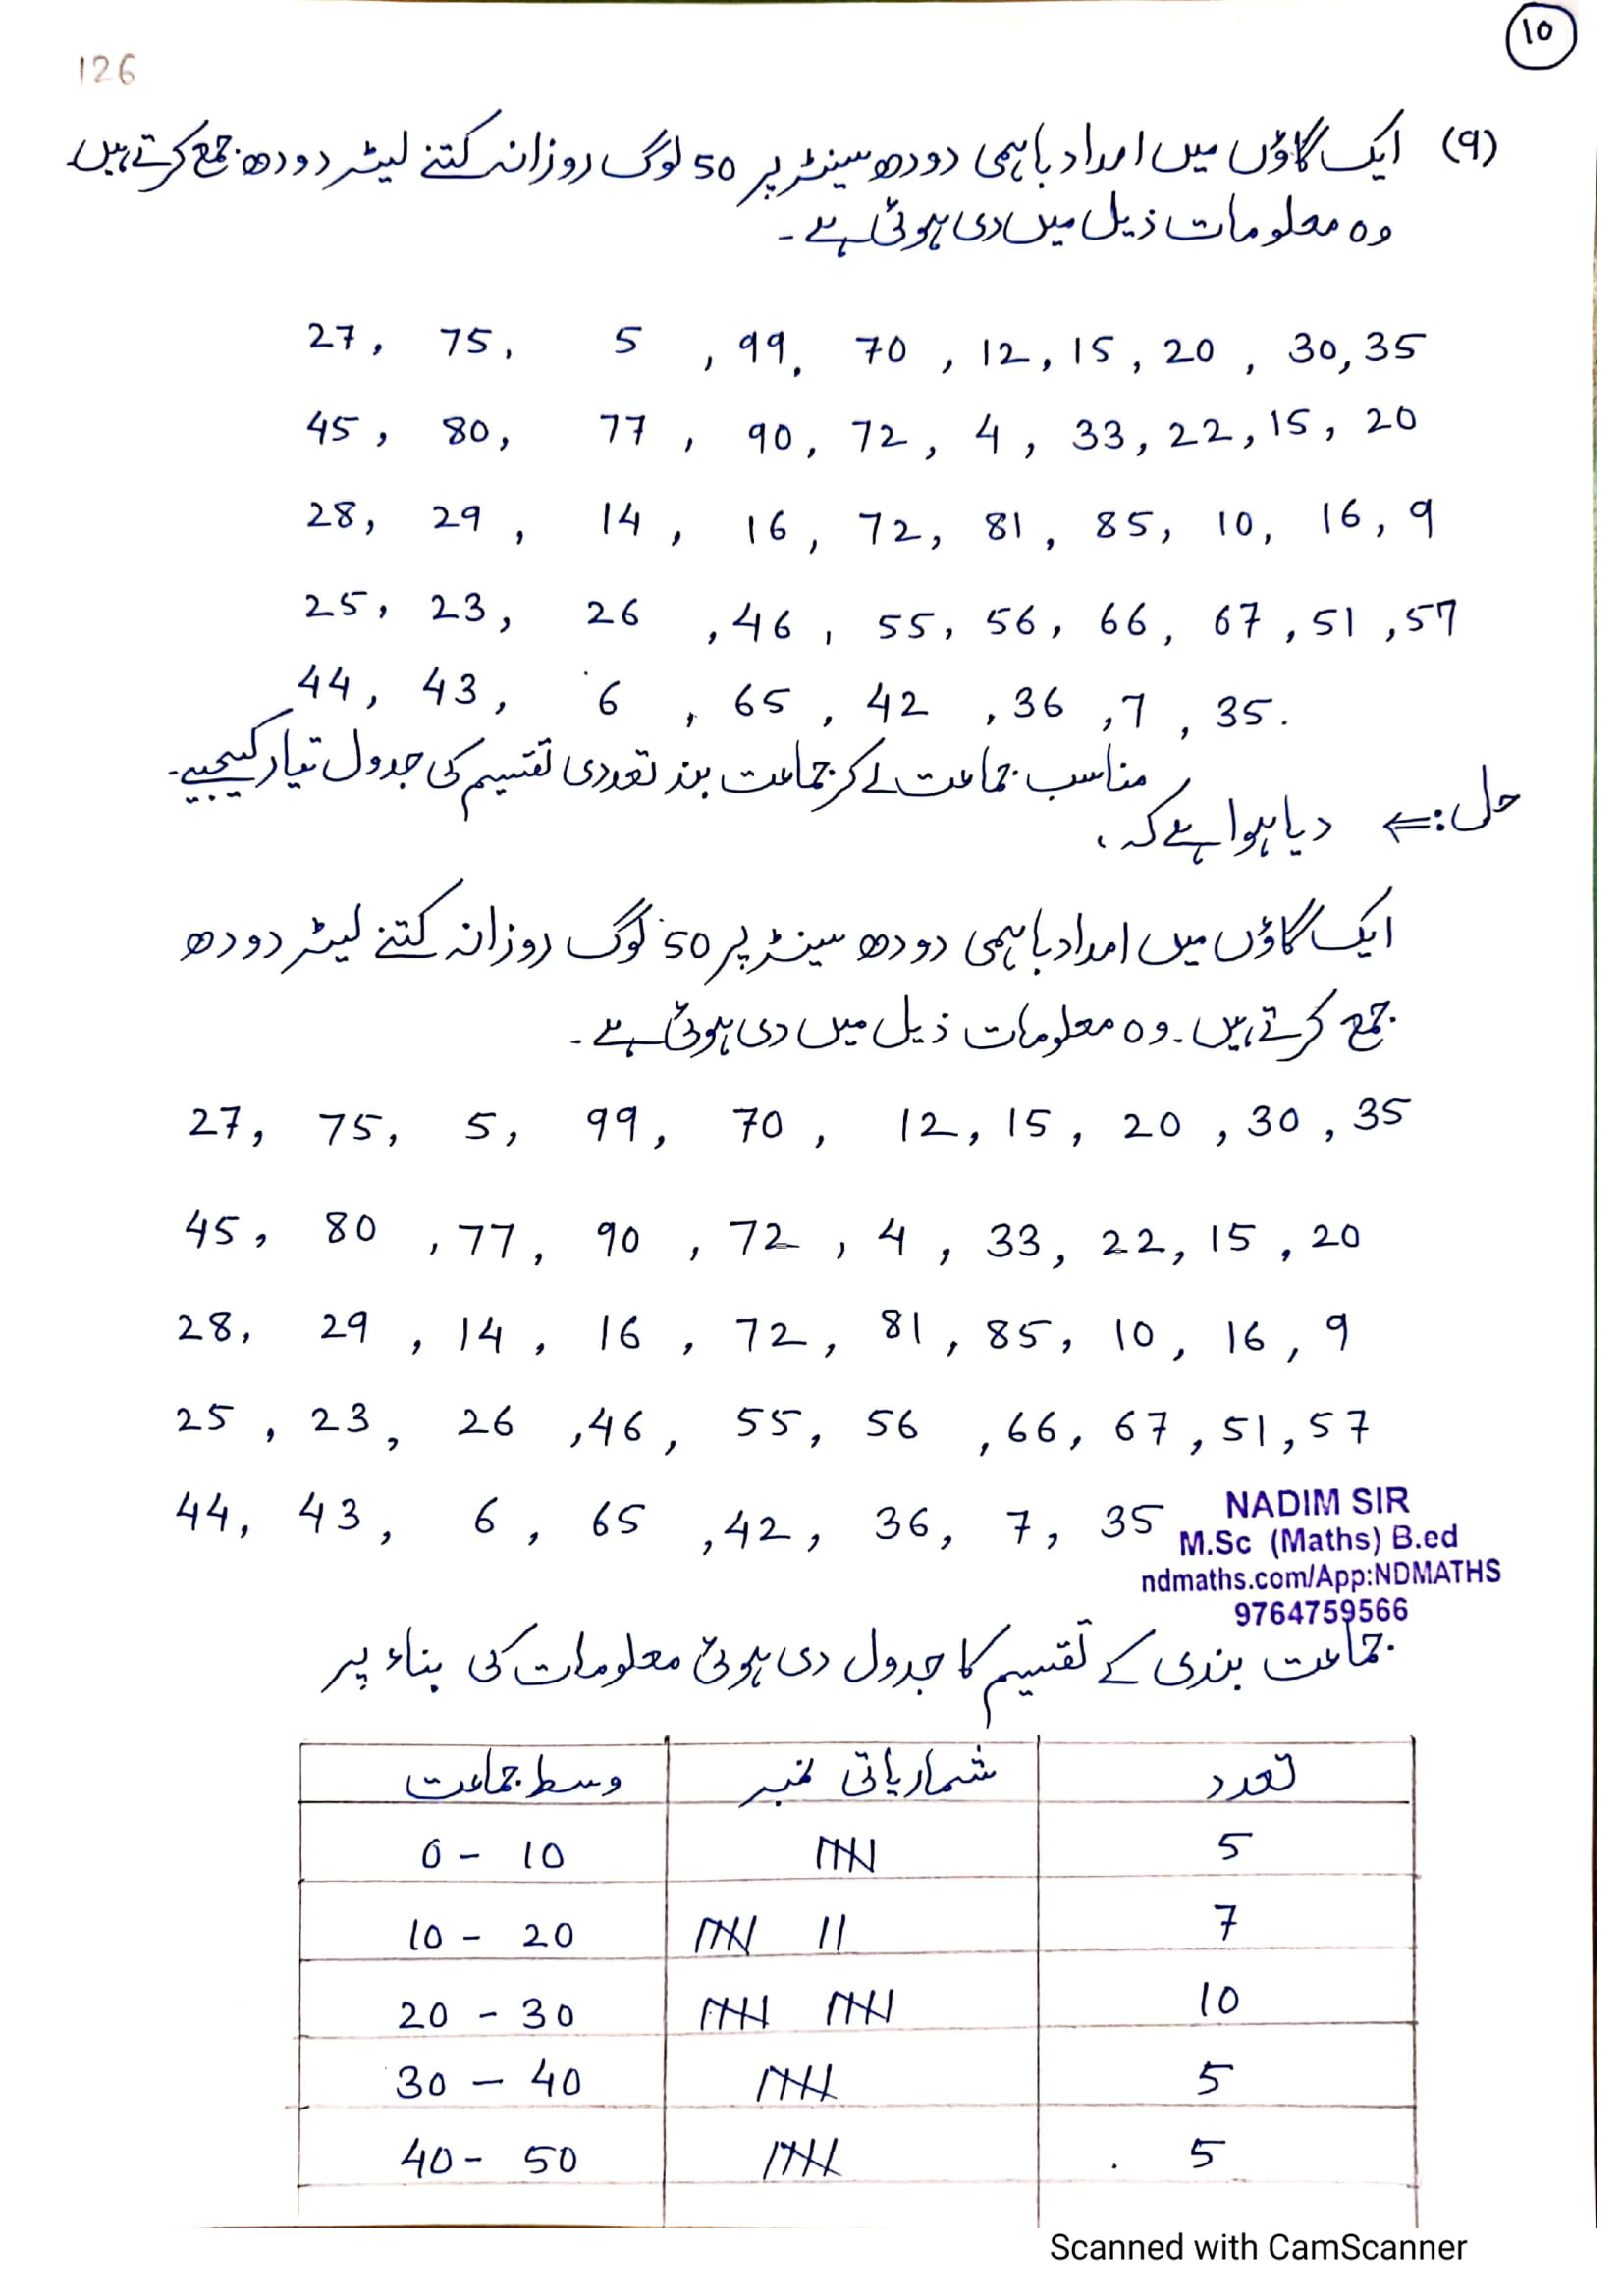 10
126
(9) ایک گاؤں میں امداد باہمی دودھ سینٹر پر 50 لوگ روزانہ کتنے لیٹر دودھ جمع کرتے ہیں
وہ معلومات ذیل میں دی ہوئی ہے ۔
27, 75, 5, 99, 70, 12, 15, 20, 30, 35
45, 80, 77, 90, 72, 4, 33, 22, 15, 20
28, 29, 14, 16, 72, 81, 85, 10, 16, 9
25, 23, 26, 46, 55, 56, 66, 67, 51, 57
44, 43, 6, 65, 42, 36, 7, 35.
مناسب جماعت لے کر جماعت بند تعددی تقسیم کی جدول تیار کیجیے۔
حل :⇐ دیا ہوا ہے کہ ،
ایک گاؤں میں امداد باہمی دودھ سینٹر پر 50 لوگ روزانہ کتنے لیٹر دودھ
جمع کرتے ہیں ۔ وہ معلومات ذیل میں دی ہوئی ہے ۔
27, 75, 5, 99, 70, 12, 15, 20, 30, 35
45, 80, 77, 90, 72, 4, 33, 22, 15, 20
28, 29, 14, 16, 72, 81, 85, 10, 16, 9
25, 23, 26, 46, 55, 56, 66, 67, 51, 57
44, 43, 6, 65, 42, 36, 7, 35
NADIM SIR
M.Sc (Maths) B.ed
ndmaths.com/App:NDMATHS
9764759566
جماعت بندی کے تقسیم کا جدول دی ہوئی معلومات کی بناء پر
وسط جماعت شماریاتی نمبر تعدد
0 - 10 𝍸 5
10 - 20 𝍸 || 7
20 - 30 𝍸 𝍸 10
30 - 40 𝍸 5
40 - 50 𝍸 5
Scanned with CamScanner